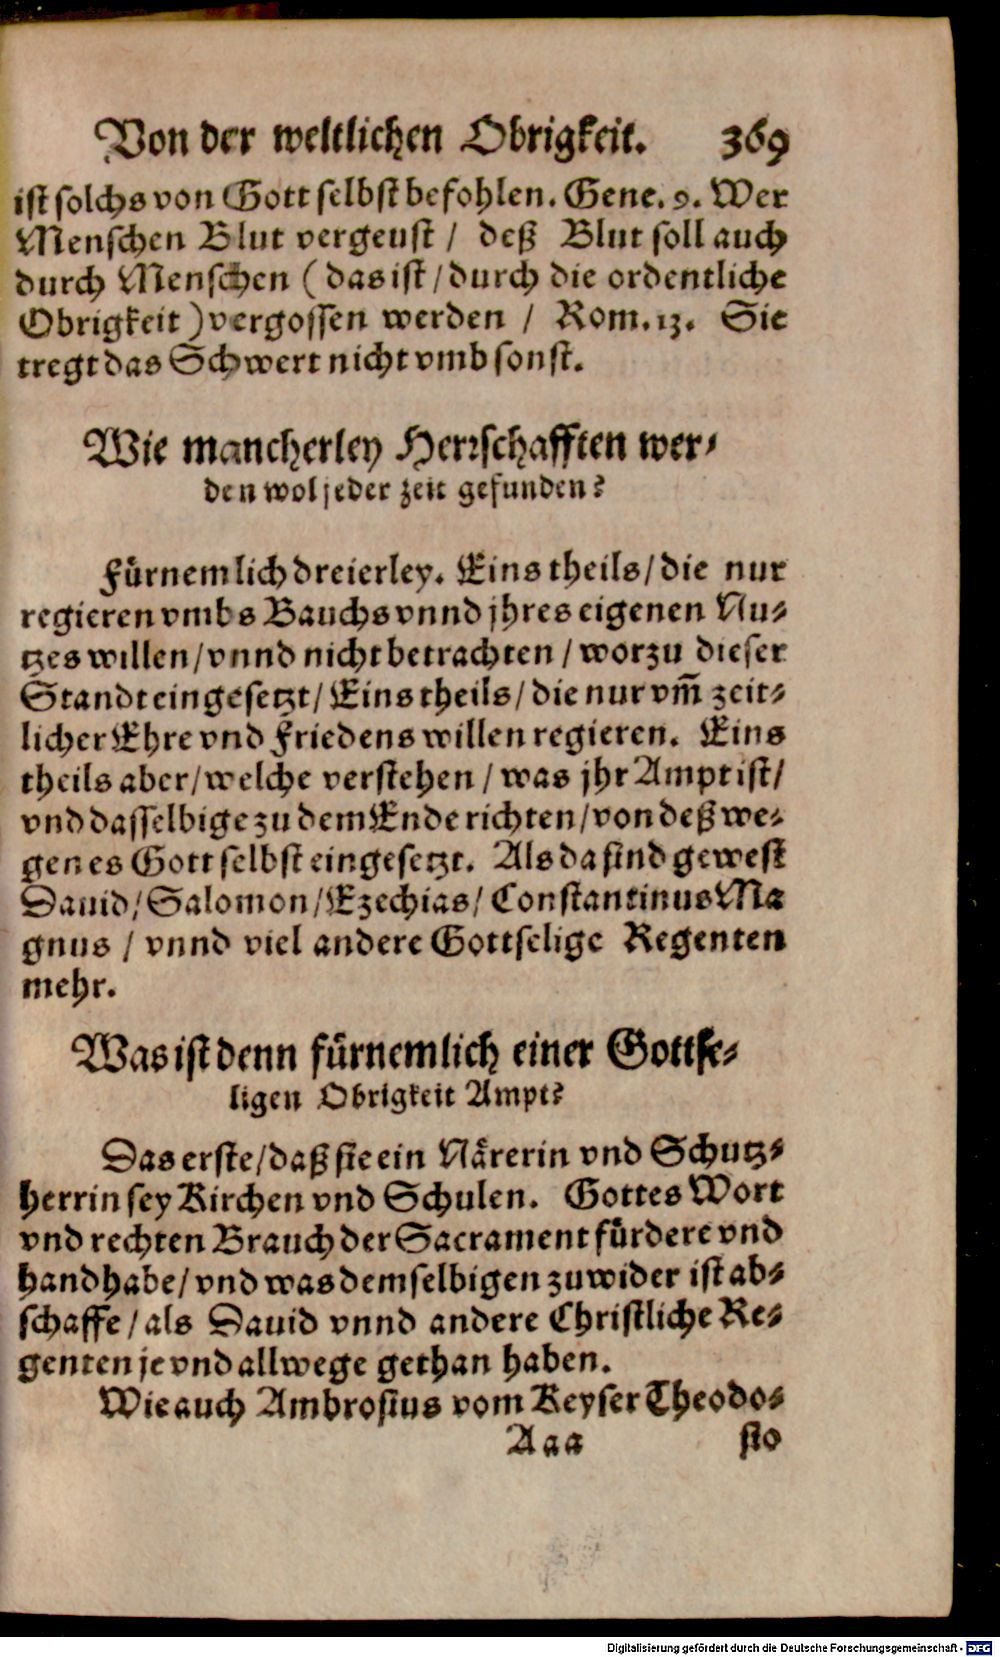 Von der weltlichen Obrigkeit. 369
ist solchs von Gott selbst befohlen. Gene. 9. Wer
Menschen Blut vergeust / deß Blut soll auch
durch Menschen (das ist / durch die ordentliche
Obrigkeit) vergossen werden / Rom. 13. Sie
tregt das Schwert nicht vmb sonst.
Wie mancherley Herrschafften wer-
den wol jeder zeit gefunden?
Fürnemlich dreierley. Eins theils / die nur
regieren vmbs Bauchs vnnd jhres eigenen Nu-
tzes willen / vnnd nicht betrachten / worzu dieser
Standt eingesetzt / Eins theils / die nur vm̃ zeit-
licher Ehre vnd Friedens willen regieren. Eins
theils aber / welche verstehen / was jhr Ampt ist /
vnd dasselbige zu dem Ende richten / von deß we-
gen es Gott selbst eingesetzt. Als da sind gewest
Dauid / Salomon / Ezechias / Constantinus Ma
gnus / vnnd viel andere Gottselige Regenten
mehr.
Was ist denn fürnemlich einer Gottse-
ligen Obrigkeit Ampt?
Das erste / daß sie ein Närerin vnd Schutz-
herrin sey Kirchen vnd Schulen. Gottes Wort
vnd rechten Brauch der Sacrament fürdere vnd
handhabe / vnd was demselbigen zuwider ist ab-
schaffe / als Dauid vnnd andere Christliche Re-
genten je vnd allwege gethan haben.
Wie auch Ambrosius vom Keyser Theodo-
Aaa sio
Digitalisierung gefördert durch die Deutsche Forschungsgemeinschaft - DFG